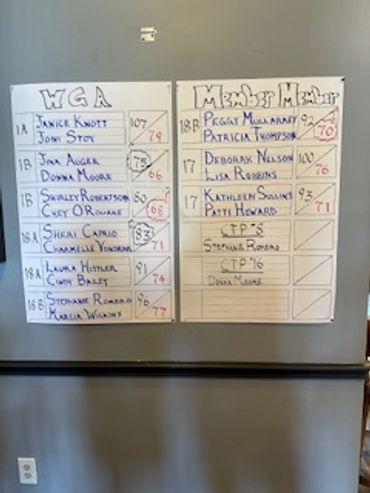 WGA
1A Janice Knott 107
Joni Stoy 79
1B Jina Auger 75
Donna Moore 66
7B Shirley Robertson 80
Chey O'Rourke 68
18A Sheri Caprio 83
Charmelle 71
18A Laura Histler 91
Cindy Bailey 74
16B Stephanie Romero 96
Marcia Wilkins 77
Member Member
18B Peggy Mullarkey 92
Patricia Thompson 70
17 Deborah Nelson 100
Lisa Robbins 76
17 Kathleen Sullins 93
Patti Howard 71
CTP
Stephanie Romero
CTP
Donna Moore